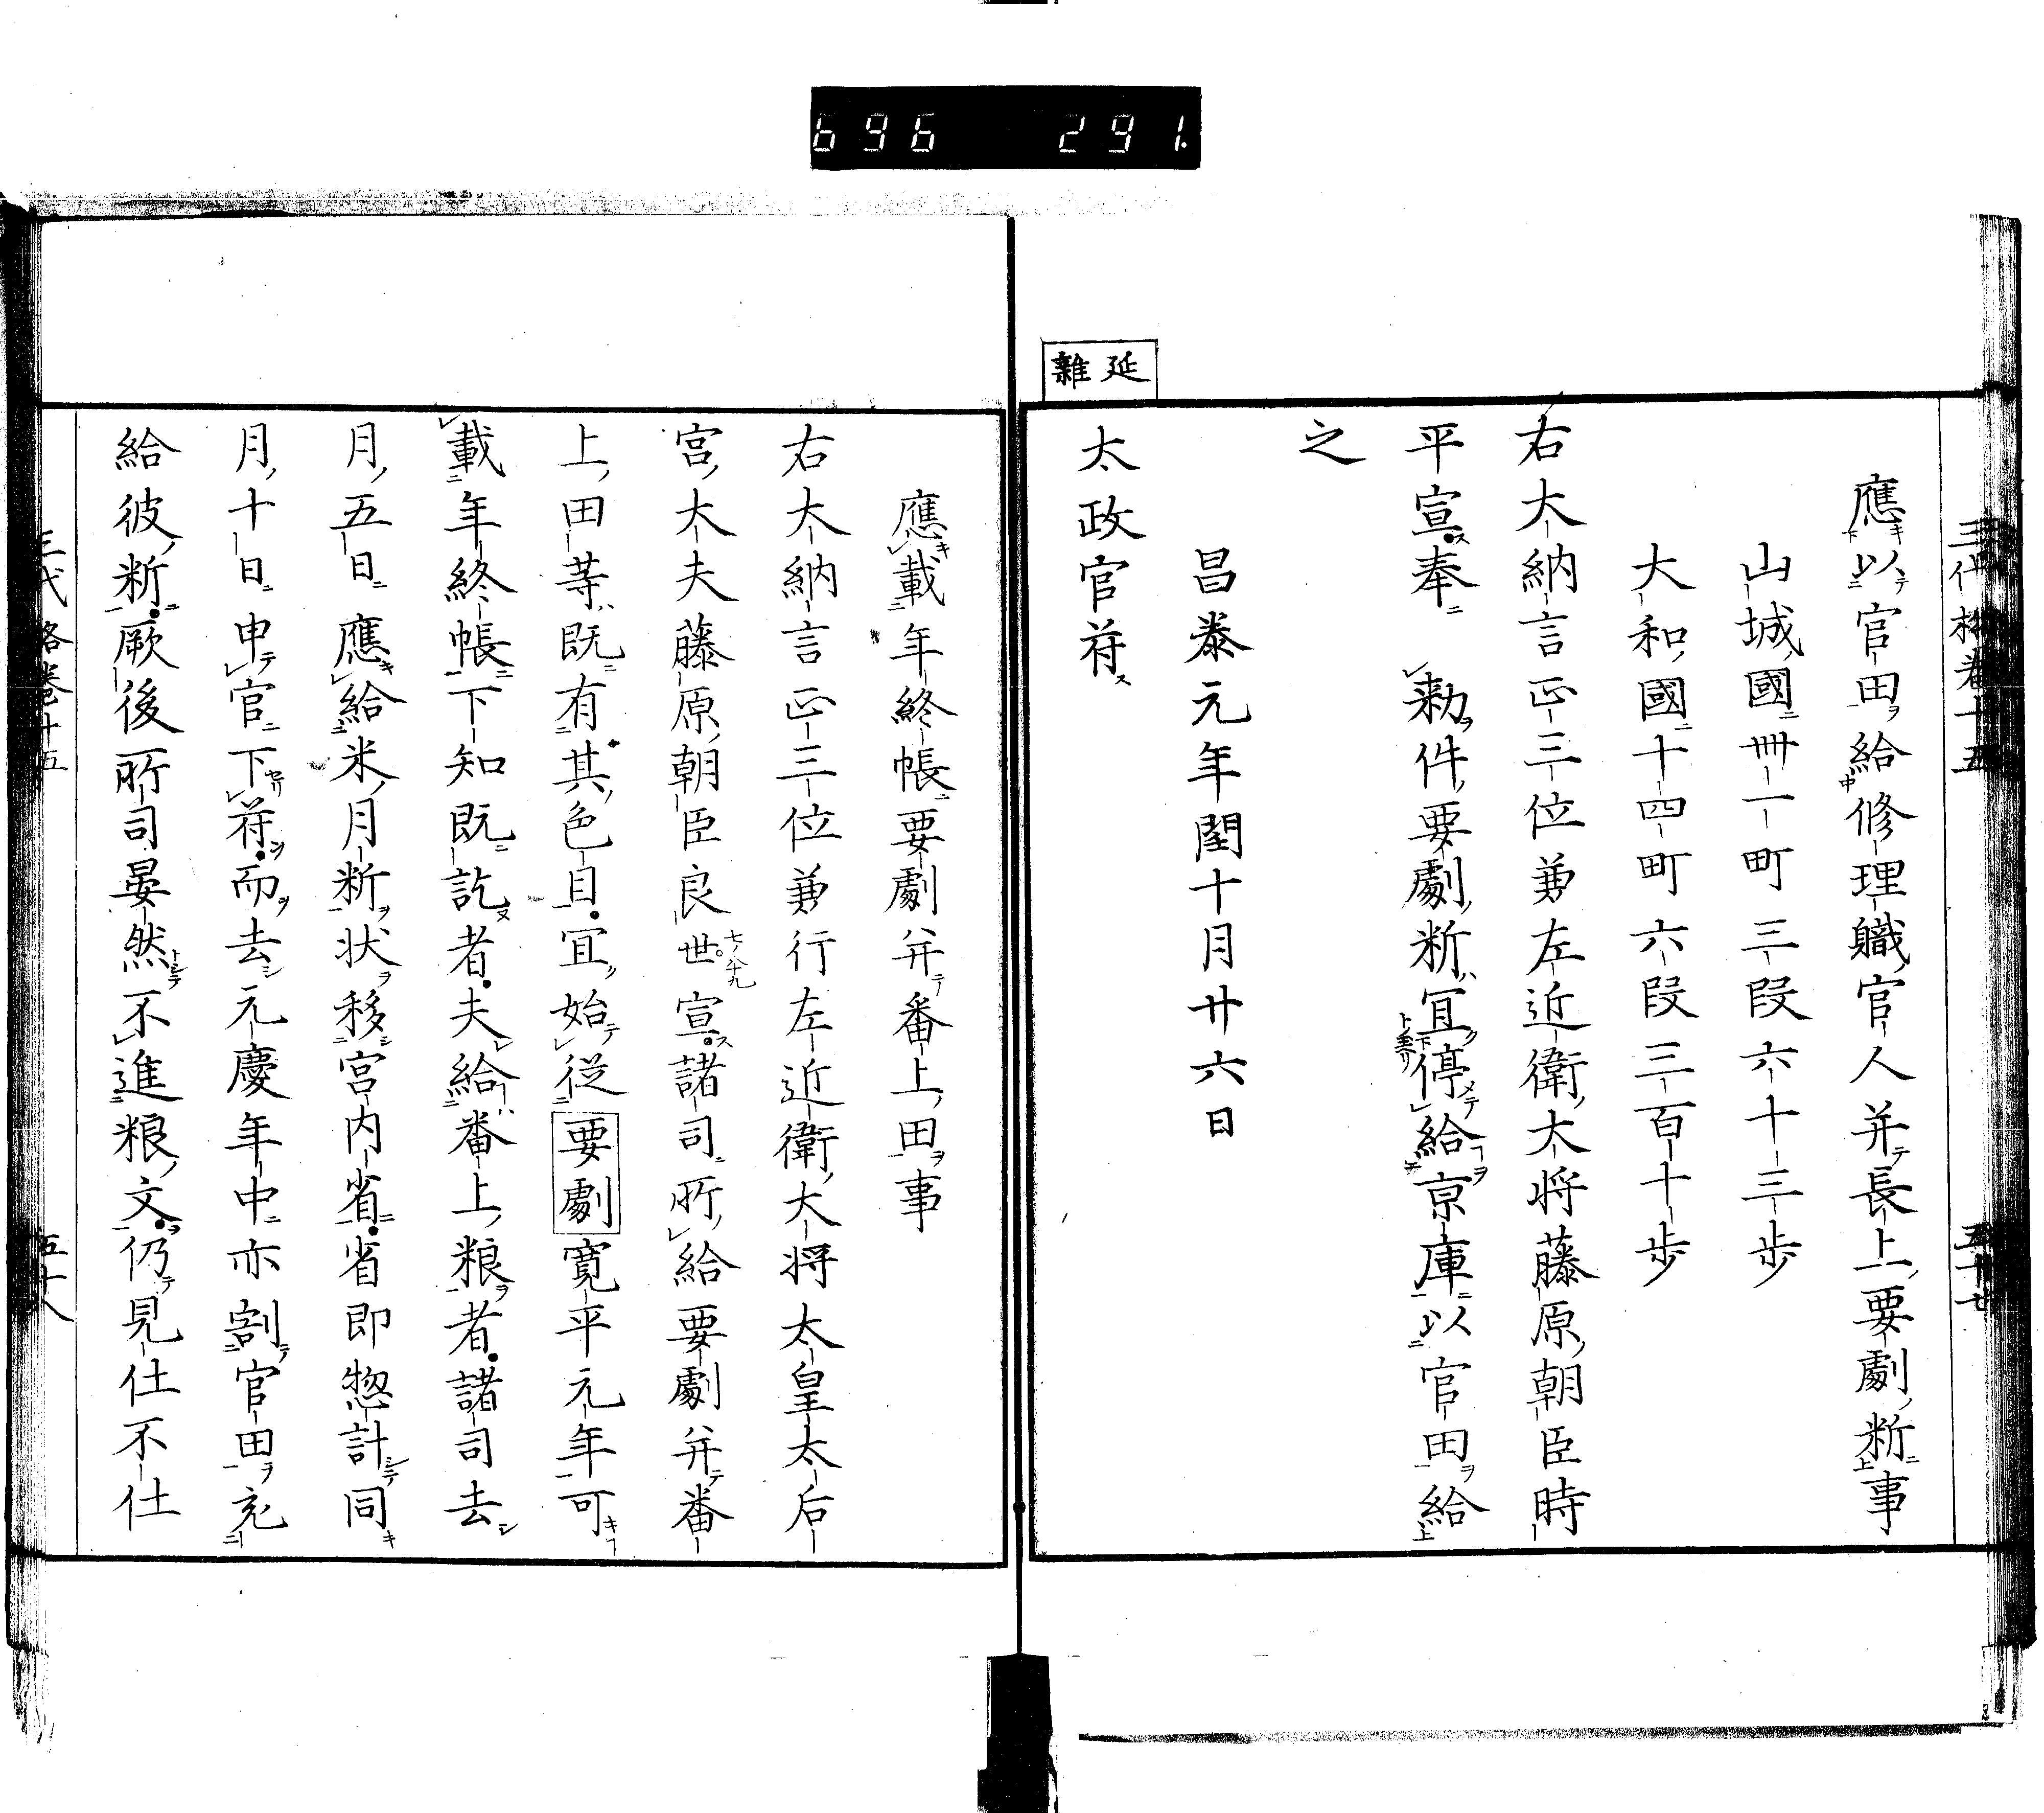 696 291
三代格卷十五 五十七
應以官田給修理職官人并長上要劇料事
山城國卌一町三段六十三歩
大和國十四町六段三百十歩
右大納言正三位兼左近衛大将藤原朝臣時
平宣奉 勅件要劇料宜停給京庫以官田給
之
昌泰元年閏十月廿六日
延雜
太政官符
應載年終帳要劇并番上田事
右大納言正三位兼行左近衛大将太皇太后
宮大夫藤原朝臣良世宣諸司所給要劇并番
上田等既有其色目宜始従要劇寛平元年可
載年終帳下知既訖者夫給番上粮者諸司去
月五日應給米月料状移宮内省省即惣計同
月十日申官下符而去元慶年中亦割官田充
給彼料厥後所司晏然不進粮文仍見仕不仕
三代格卷十五 五十八